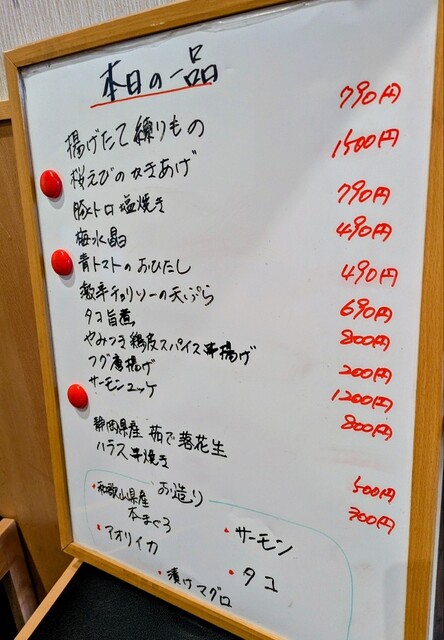 本日の一品
揚げたて練りもの 790円
桜えびのかきあげ 1500円
豚トロ塩焼き 790円
梅水晶 490円
青トマトのおひたし 490円
激辛チョリソーの天ぷら 690円
タコ旨煮 800円
やみつき鶏皮スパイス串揚げ 200円
フグ唐揚げ 1200円
サーモンユッケ 800円
静岡県産 茹で落花生 500円
ハラス串焼き 700円
お造り
・和歌山県産
本まぐろ
・サーモン
・アオリイカ
・タコ
・漬けマグロ